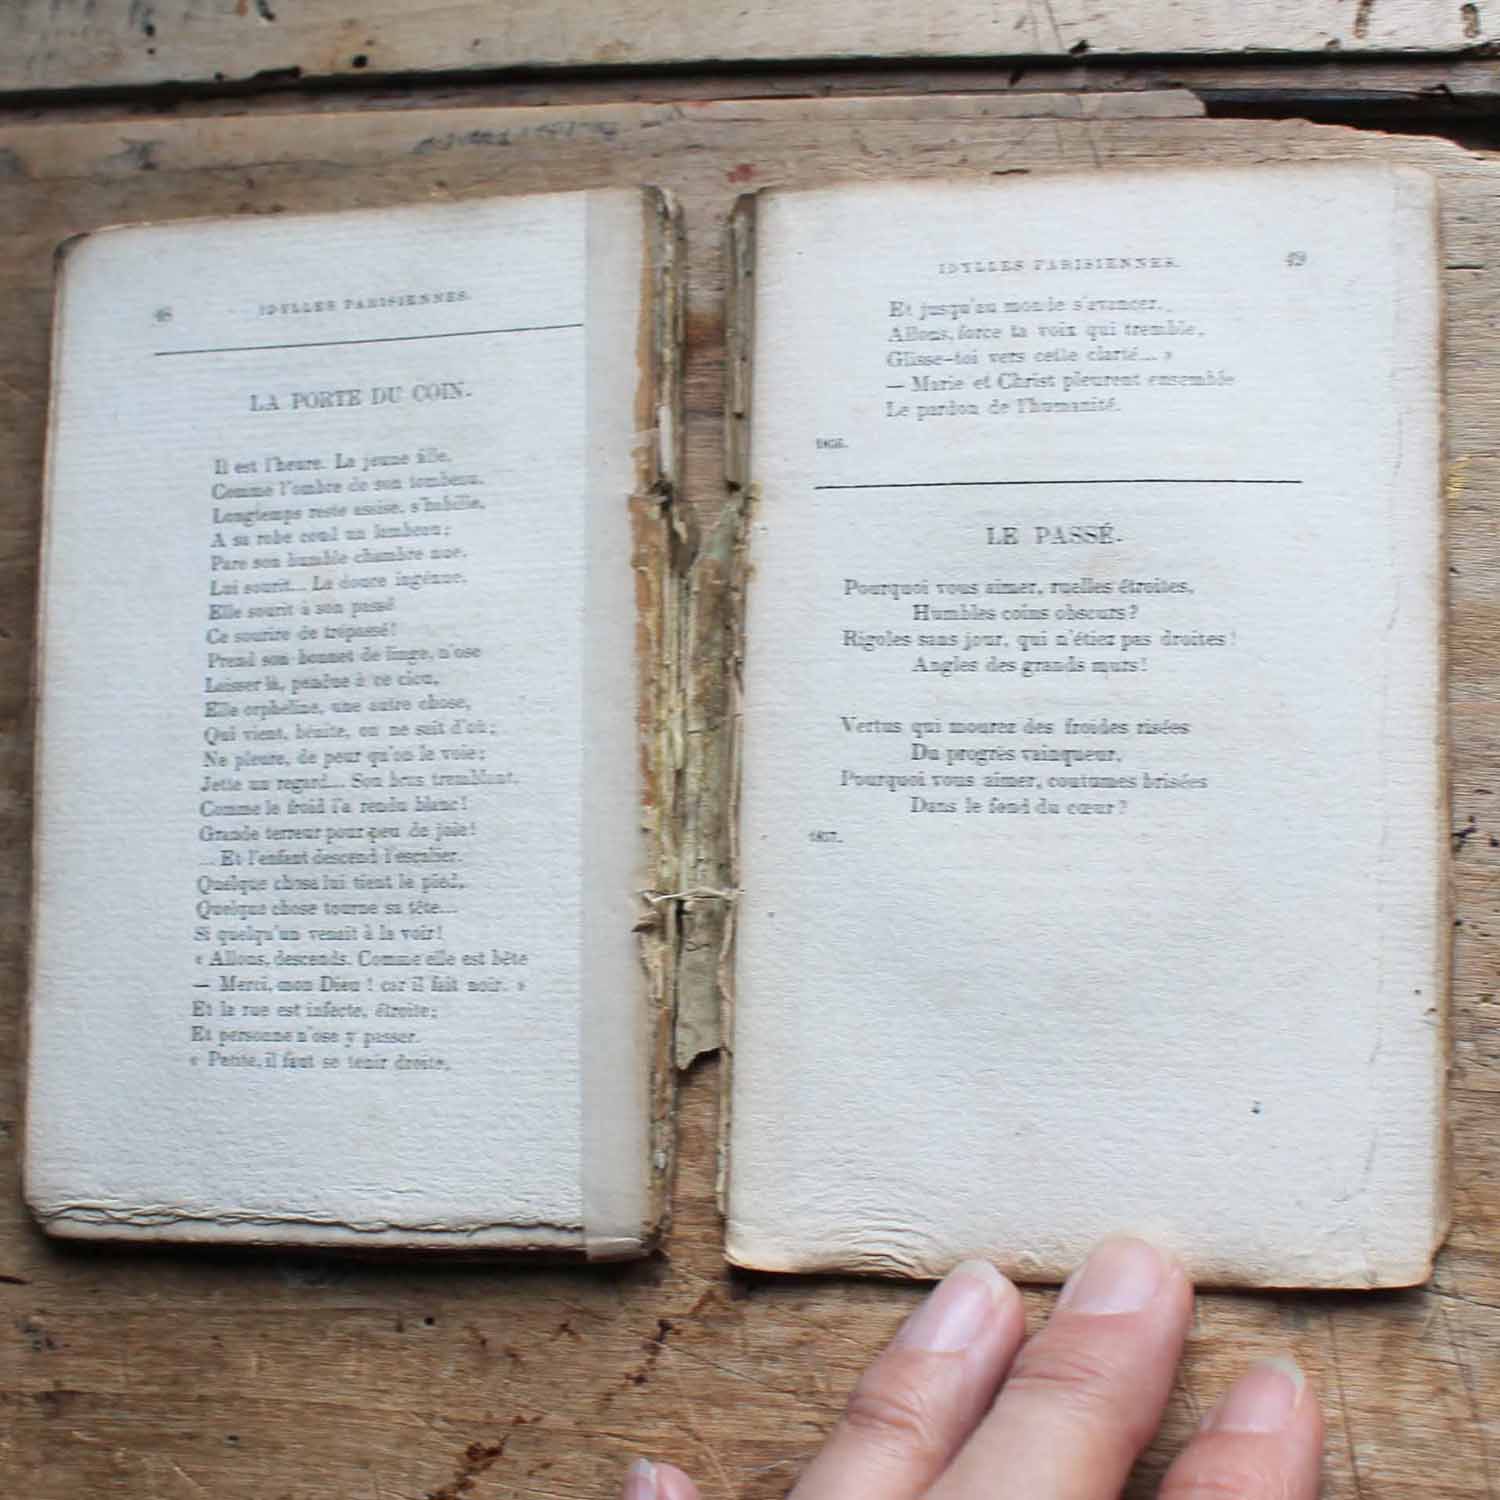 48
IDYLLES PARISIENNES.
LA PORTE DU COIN.
Il est l'heure. La jeune fille,
Comme l'ombre de son tombeau,
Longtemps reste assise, s'habille,
A sa robe coud un lambeau;
Pare son humble chambre nue,
Lui sourit... La douce ingénue,
Elle sourit à son passé
Ce sourire de trépassé!
Prend son bonnet de linge, n'ose
Laisser là, pendue à ce clou,
Elle orpheline, une autre chose,
Qui vient, bénite, on ne sait d'où;
Ne pleure, de peur qu'on le voie;
Jette un regard... Son bras tremblant,
Comme le froid l'a rendu blanc!
Grande terreur pour peu de joie!
... Et l'enfant descend l'escalier.
Quelque chose lui tient le pied,
Quelque chose tourne sa tête...
Si quelqu'un venait à la voir!
« Allons, descends. Comme elle est bête
— Merci, mon Dieu ! car il fait noir. »
Et la rue est infecte, étroite;
Et personne n'ose y passer.
« Petite, il faut se tenir droite,
IDYLLES PARISIENNES.
49
Et jusqu'au monde s'avancer.
Allons, force ta voix qui tremble,
Glisse-toi vers cette clarté... »
— Marie et Christ pleurent ensemble
Le pardon de l'humanité.
LE PASSÉ.
Pourquoi vous aimer, ruelles étroites,
Humbles coins obscurs?
Rigoles sans jour, qui n'étiez pas droites!
Angles des grands murs!
Vertus qui mourez des froides risées
Du progrès vainqueur,
Pourquoi vous aimer, coutumes brisées
Dans le fond du cœur?
1857.